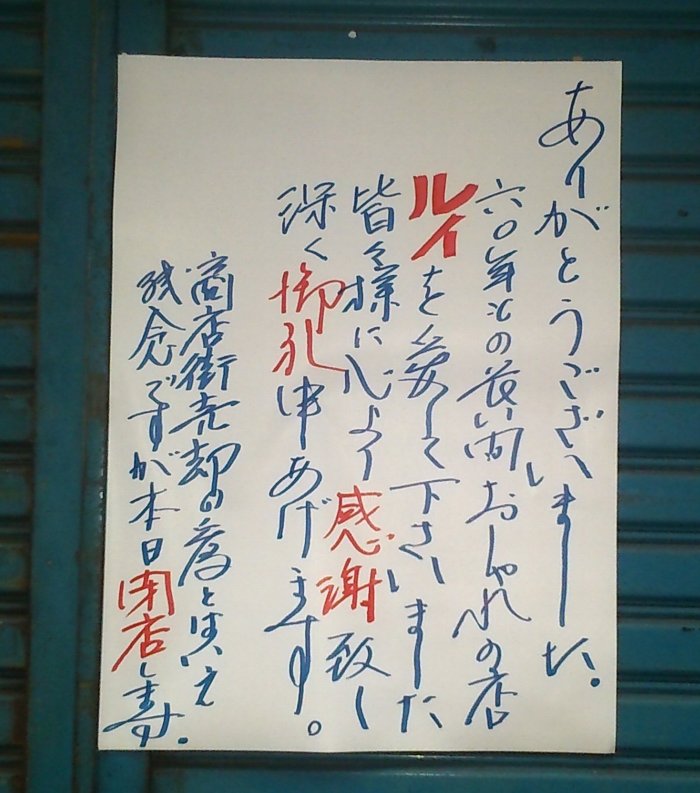 ありがとうございました。
六〇年もの長い間おしゃれの店
ルイを愛して下さいました
皆々様に心より感謝致し
深く御礼申あげます。
商店街売却の為とはいえ
残念ですが本日閉店します。